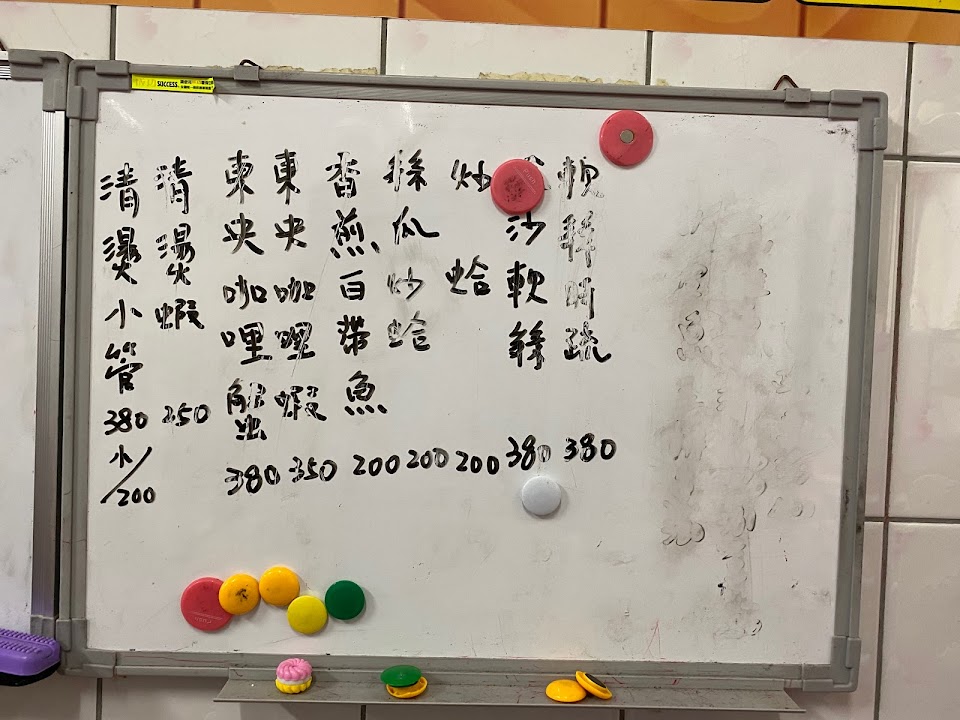 SUCCESS
軟絲時疏 380
沙軟絲 380
炒蛤 200
絲瓜炒蛤 200
香煎白帶魚 200
東央咖哩蝦 350
東央咖哩蟹 380
清燙蝦 250
清燙小管 380
小/200